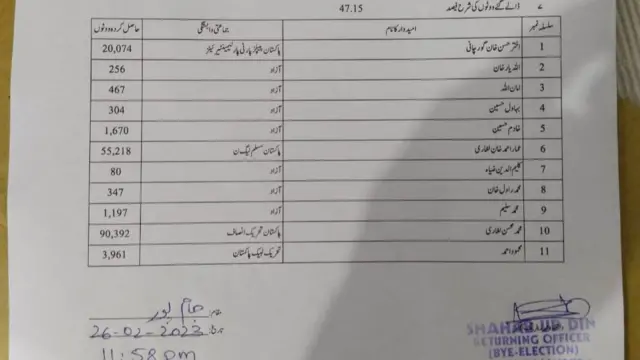 ۷ ڈالے گئے ووٹوں کی شرح فیصد 47.15
سلسلہ نمبر امیدوار کا نام جماعتی وابستگی حاصل کردہ ووٹوں
1 اختر حسن خان گورچانی پاکستان پیپلز پارٹی پارلیمینٹیرینز 20,074
2 اللہ یار خان آزاد 256
3 امان اللہ آزاد 467
4 بہاول حسین آزاد 304
5 خادم حسین آزاد 1,670
6 عمار احمد خان لغاری پاکستان مسلم لیگ ن 55,218
7 کلیم الدین ضیاء آزاد 80
8 محمد راول خان آزاد 347
9 محمد سلیم آزاد 1,197
10 محمد محسن لغاری پاکستان تحریک انصاف 90,392
11 محمود احمد تحریک لبیک پاکستان 3,961
مقام: جام پور
تاریخ: 26-02-2023
11:58 pm
RETURNING OFFICER
(BYE-ELECTION)